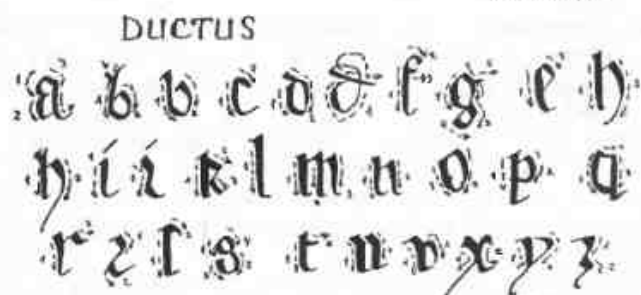 DUCTUS
a b b c d d f g e h
h i i k l m n o p q
r r s s t u v x y z